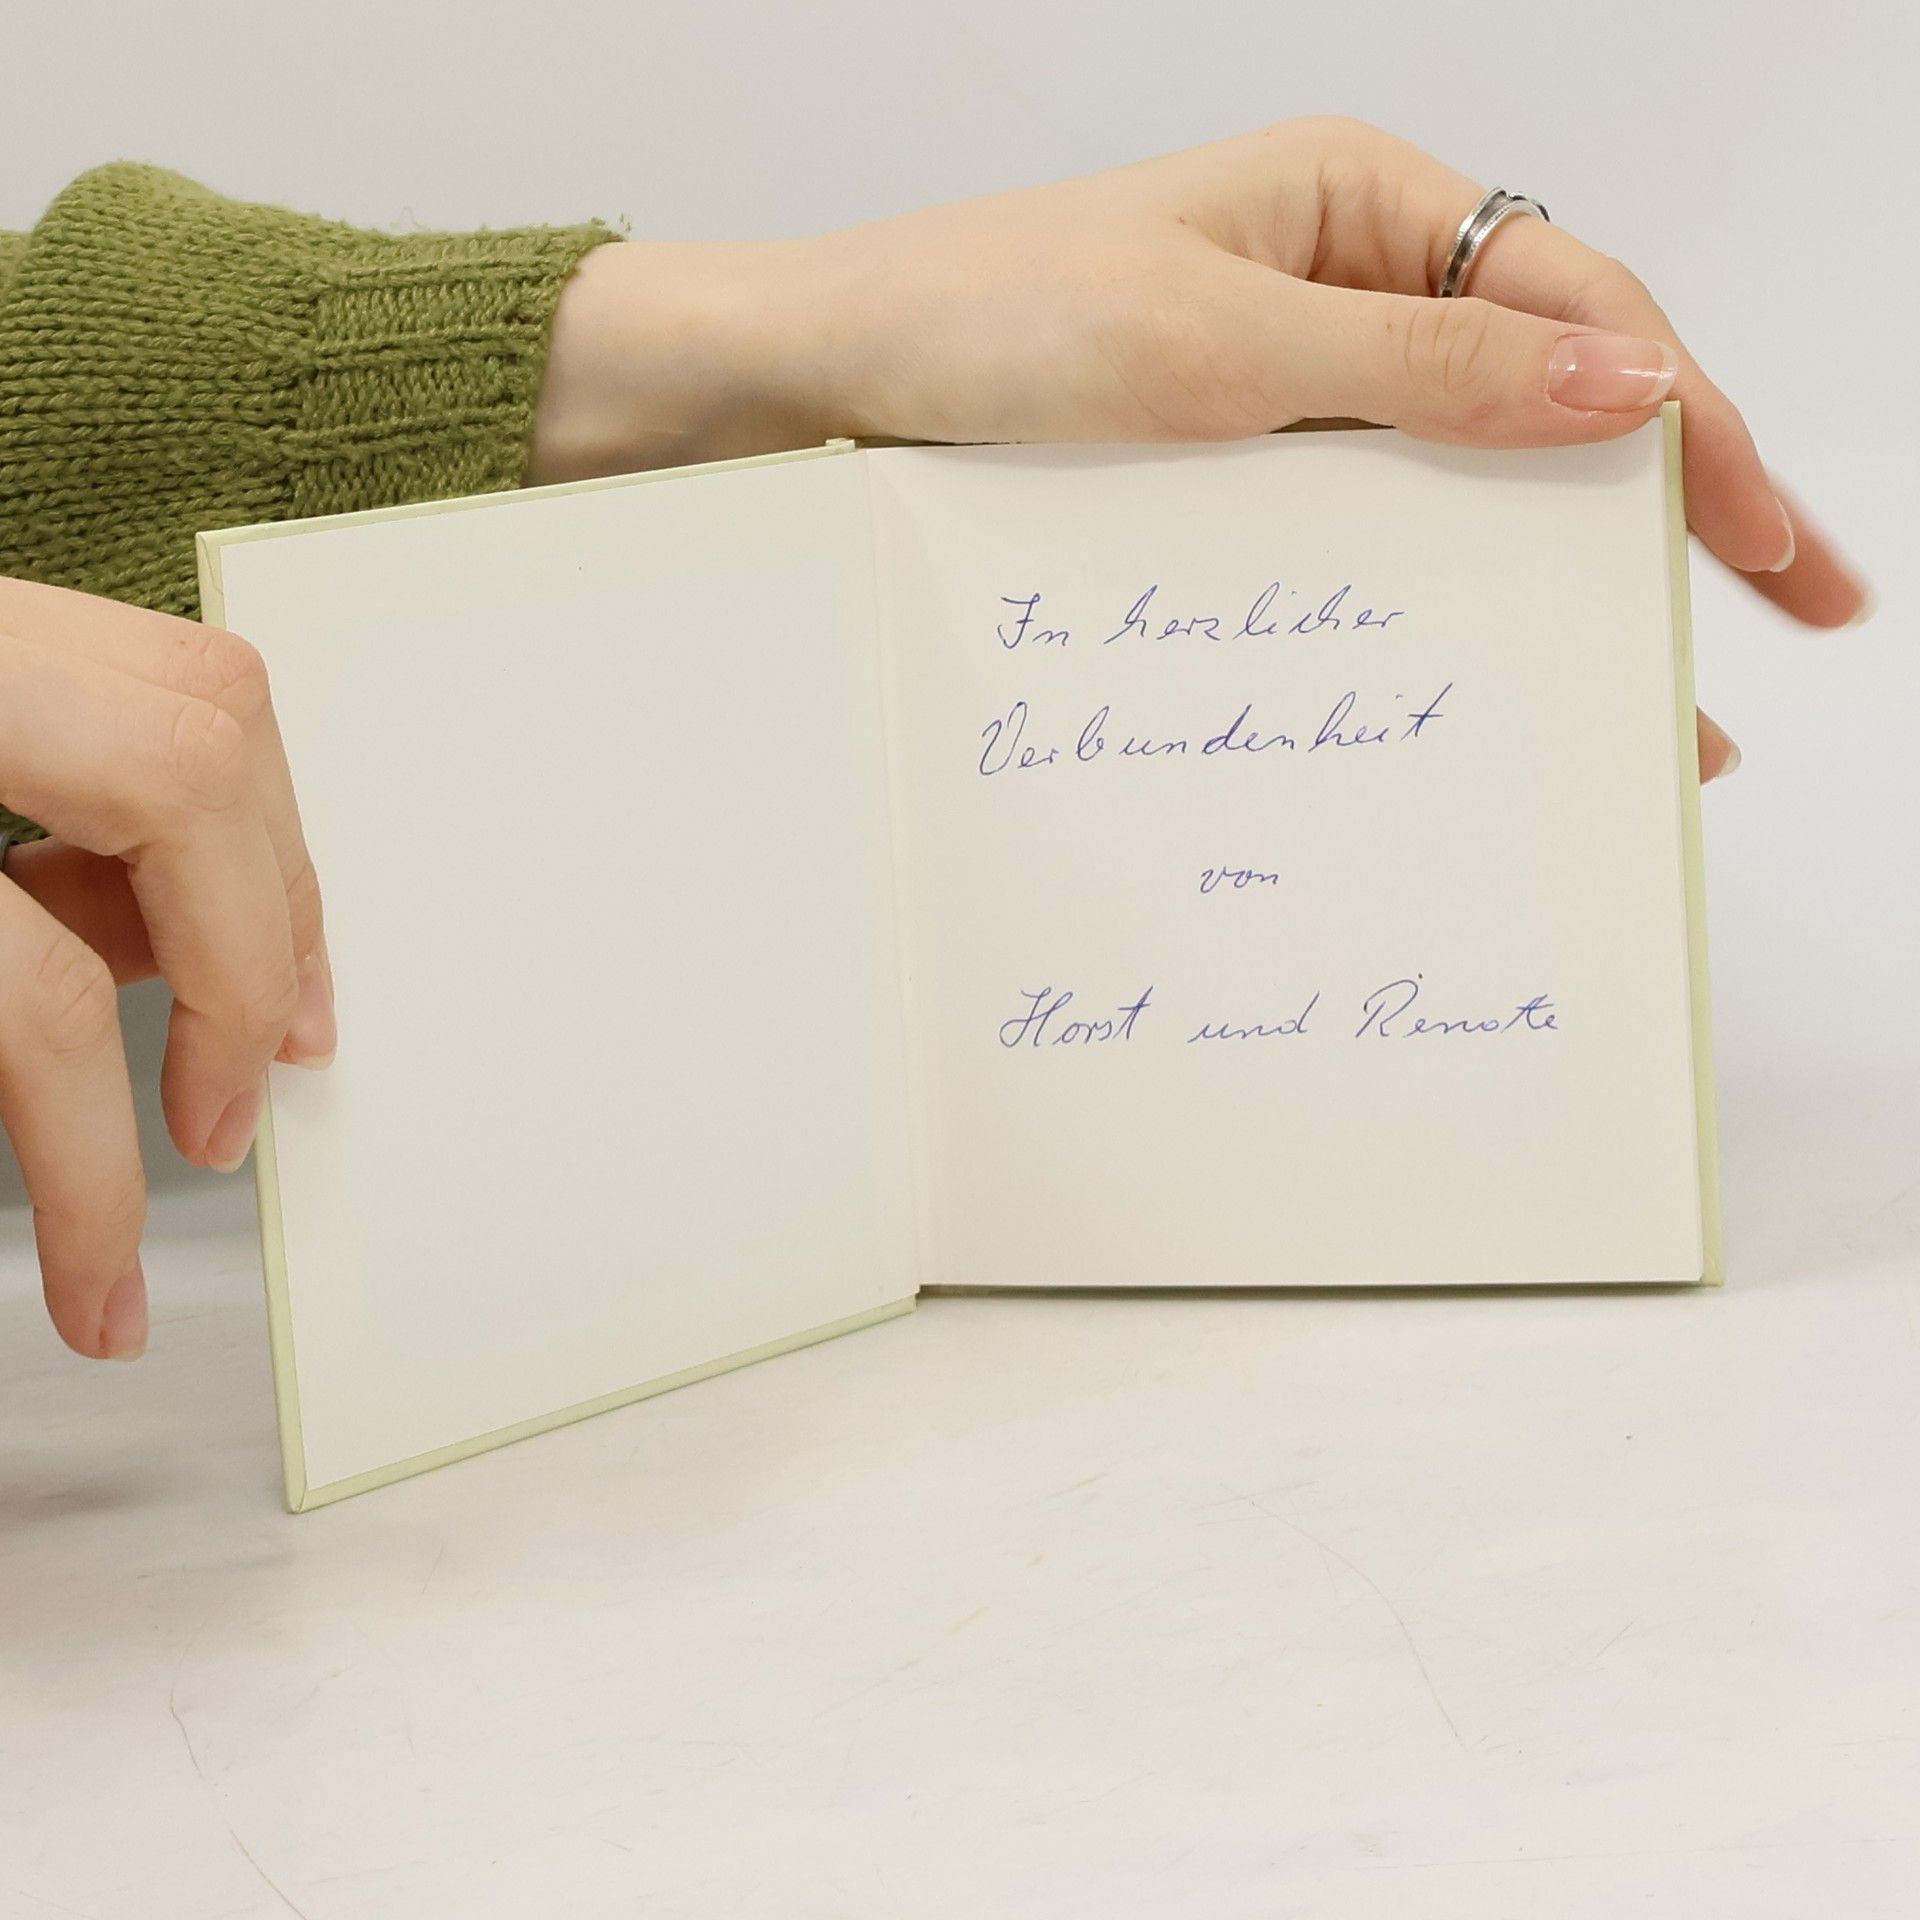 In herzlicher
Verbundenheit
von
Horst und Renate